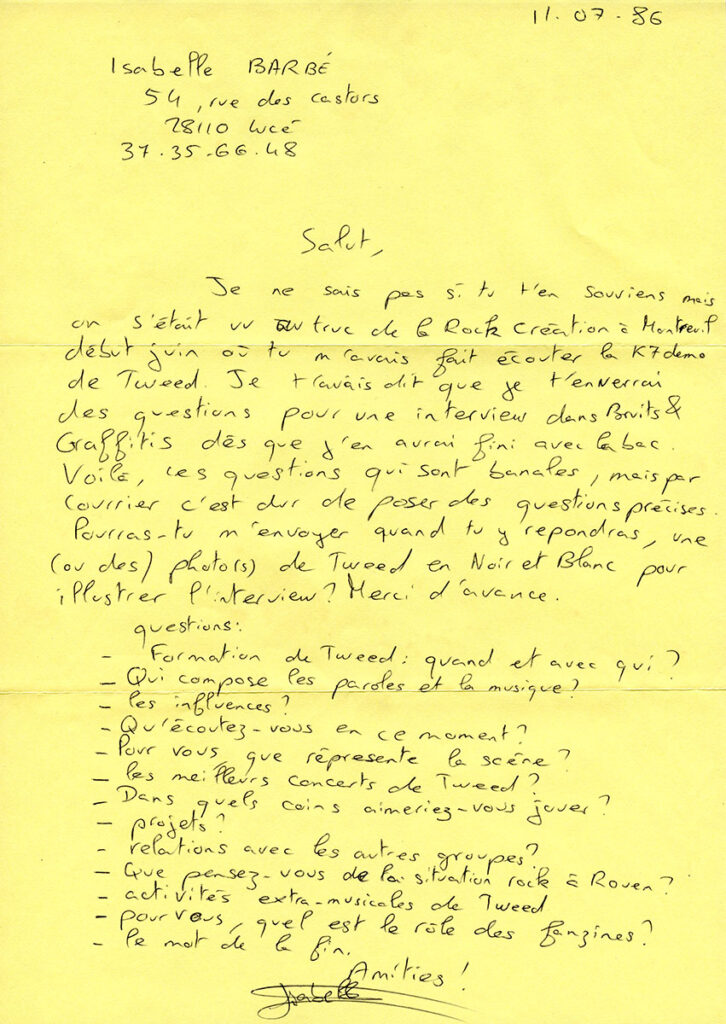 11.07.86
Isabelle BARBÉ
54, rue des castors
28110 Lucé
37.35.66.48
Salut,
Je ne sais pas si tu t'en souviens mais
on s'était vu au truc de la Rock Création à Montreuil
début juin où tu m'avais fait écouter la K7 demo
de Tweed. Je t'avais dit que je t'enverrai
des questions pour une interview dans Bruits &
Graffitis dès que j'en aurai fini avec le bac.
Voilà, ces questions qui sont banales, mais par
courrier c'est dur de poser des questions précises.
Pourras-tu m'envoyer quand tu y repondras, une
(ou des) photo(s) de Tweed en Noir et Blanc pour
illustrer l'interview? Merci d'avance.
questions:
- Formation de Tweed: quand et avec qui?
- Qui compose les paroles et la musique?
- les influences?
- Qu'écoutez-vous en ce moment?
- Pour vous, que réprésente la scène?
- les meilleurs concerts de Tweed?
- Dans quels coins aimeriez-vous jouer?
- projets?
- relations avec les autres groupes?
- Que pensez-vous de la situation rock à Rouen?
- activités extra-musicales de Tweed
- pour vous, quel est le rôle des fanzines?
- le mot de la fin.
Amitiés!
Isabelle